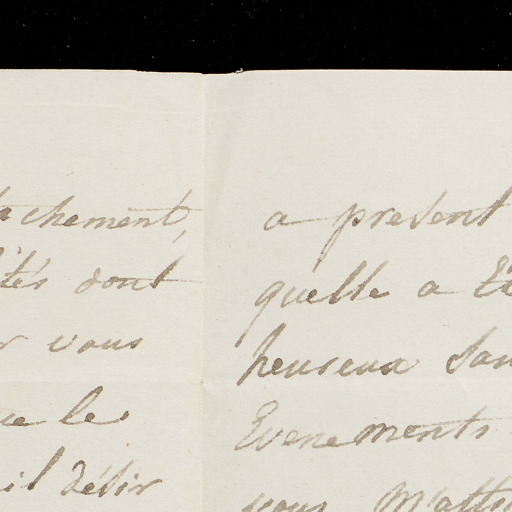 chement,
dont
vous
le
il désir
a present
quelle a
heureux
Evenements
vous